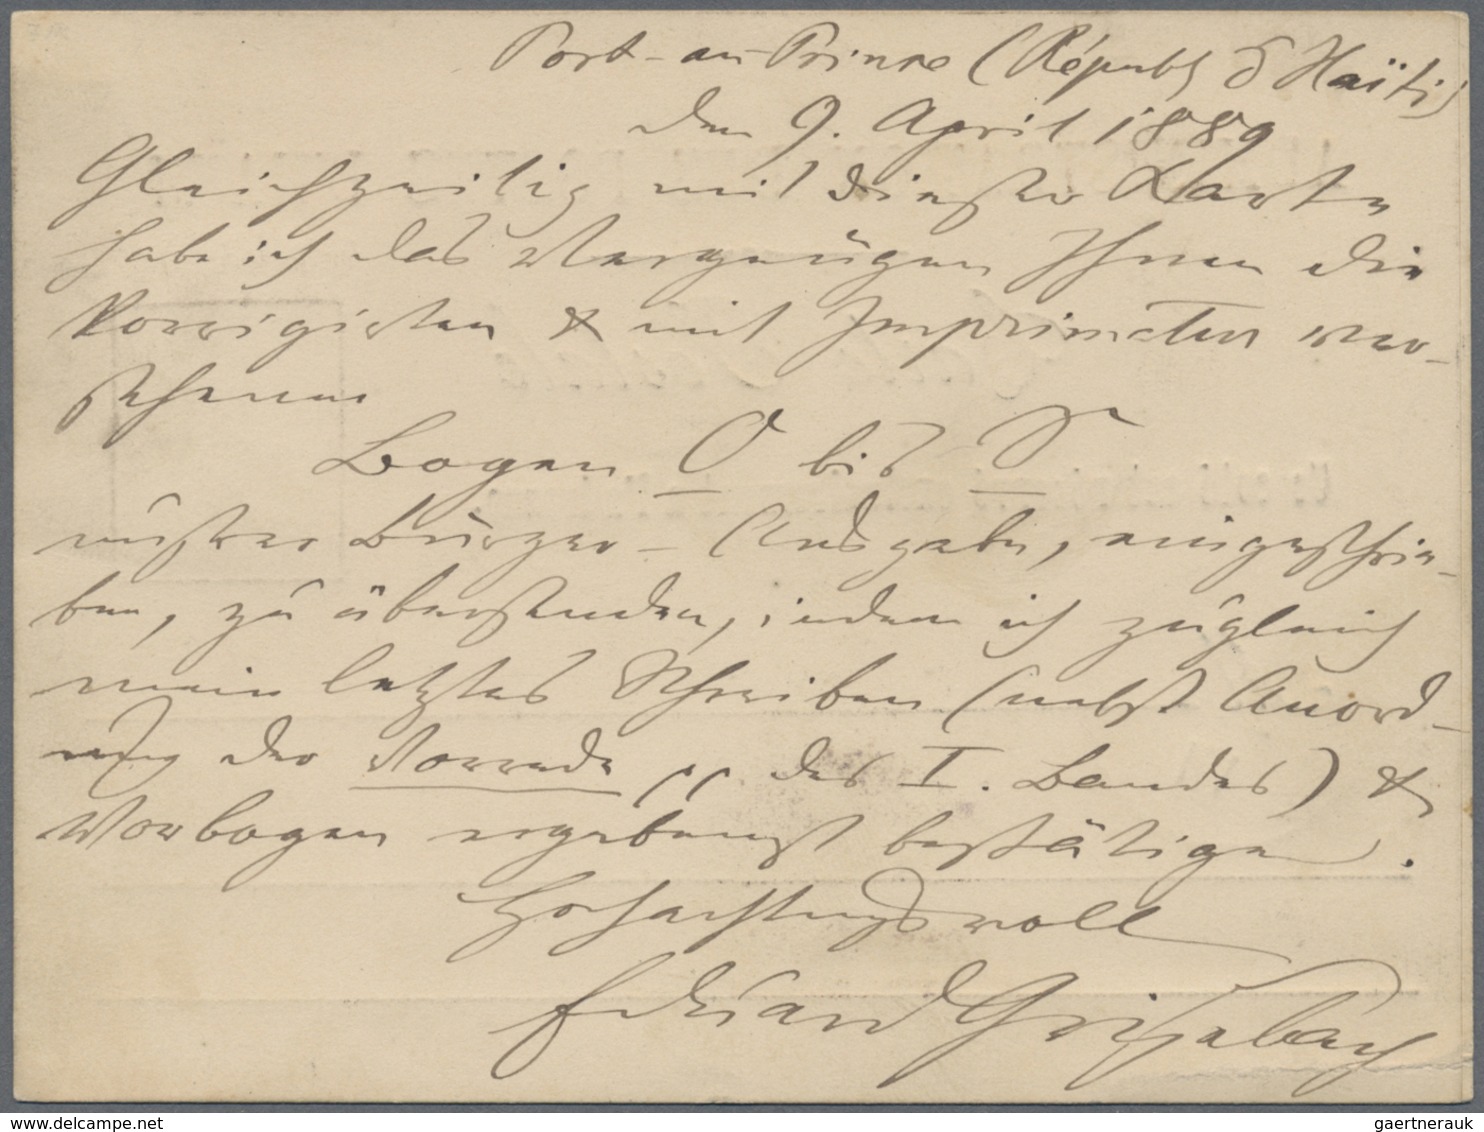 Port-au-Prince (Républ d'Haïti)
den 9. April 1889
Gleichzeitig mit dieser Karte
habe ich das Vergnügen Ihnen die
korrigirten & mit Imprimatur ver-
sehenen
Bogen O bis S
unsrer Bürger-Ausgabe, eingeschrie-
ben, zu übersenden, indem ich zugleich
mein letztes Schreiben (nebst Anord-
nung der Vorrede des I. Bandes) &
Vorbogen ergebenst bestätigen.
Hochachtungsvoll
Eduard Grisebach
gaertnerauk